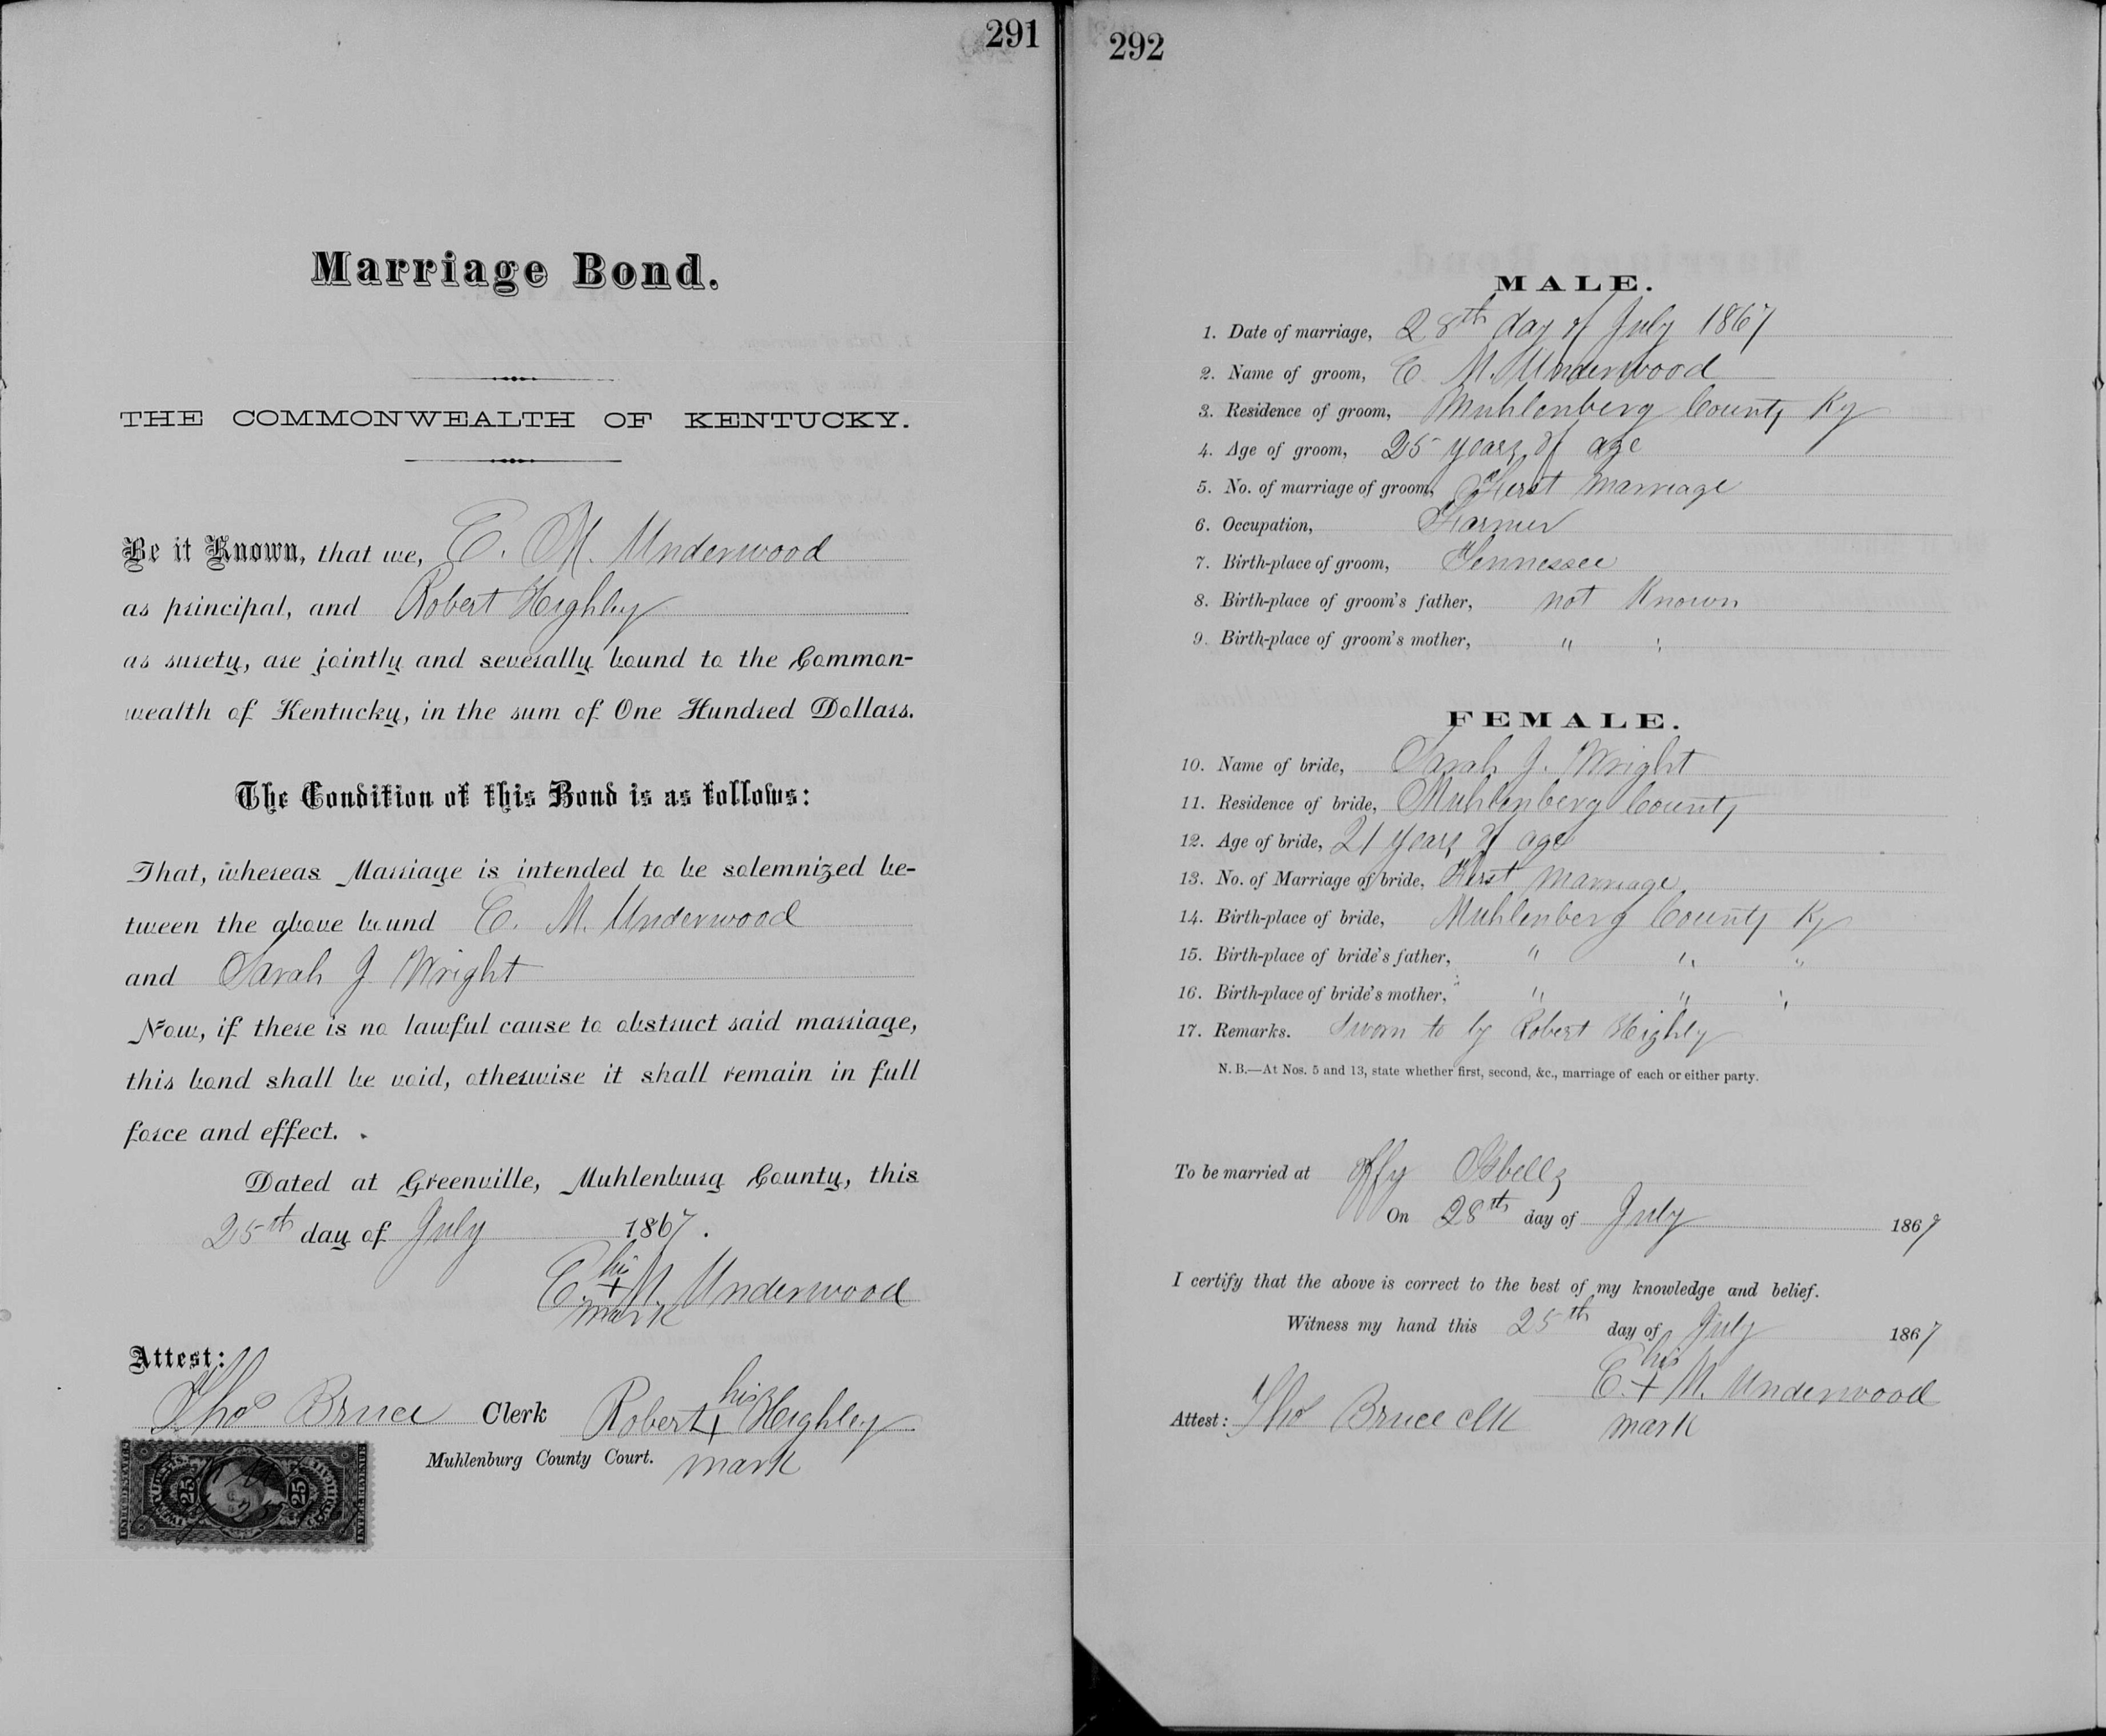 291
Marriage Bond.
THE COMMONWEALTH OF KENTUCKY.
Be it Known, that we, E. M. Underwood
as principal, and Robert Heighley
as surety, are jointly and severally bound to the Common-
wealth of Kentucky, in the sum of One Hundred Dollars.
The Condition of this Bond is as follows:
That, whereas Marriage is intended to be solemnized be-
tween the above bound E. M. Underwood
and Sarah J. Wright
Now, if there is no lawful cause to obstruct said marriage,
this bond shall be void, otherwise it shall remain in full
force and effect.
Dated at Greenville, Muhlenburg County, this
25th day of July 1867.
his
E. + M. Underwood
mark
Attest:
Thos Bruce Clerk
his
Robert + Heighley
mark
Muhlenburg County Court.
25 25
292
MALE.
1. Date of marriage, 28th day of July 1867
2. Name of groom, E M. Underwood
3. Residence of groom, Muhlenberg County Ky
4. Age of groom, 25 years of age
5. No. of marriage of groom, First Marriage
6. Occupation, Farmer
7. Birth-place of groom, Tennessee
8. Birth-place of groom's father, not Known
9. Birth-place of groom's mother, " "
FEMALE.
10. Name of bride, Sarah J. Wright
11. Residence of bride, Muhlenberg County
12. Age of bride, 21 years of age
13. No. of Marriage of bride, First Marriage
14. Birth-place of bride, Muhlenberg County Ky
15. Birth-place of bride's father, " " "
16. Birth-place of bride's mother, " " "
17. Remarks. Sworn to by Robert Heighly
N. B.—At Nos. 5 and 13, state whether first, second, &c., marriage of each or either party.
To be married at
On 28th day of July 1867
I certify that the above is correct to the best of my knowledge and belief.
Witness my hand this 25th day of July 1867
his
E. + M. Underwood
mark
Attest: Thos Bruce clk